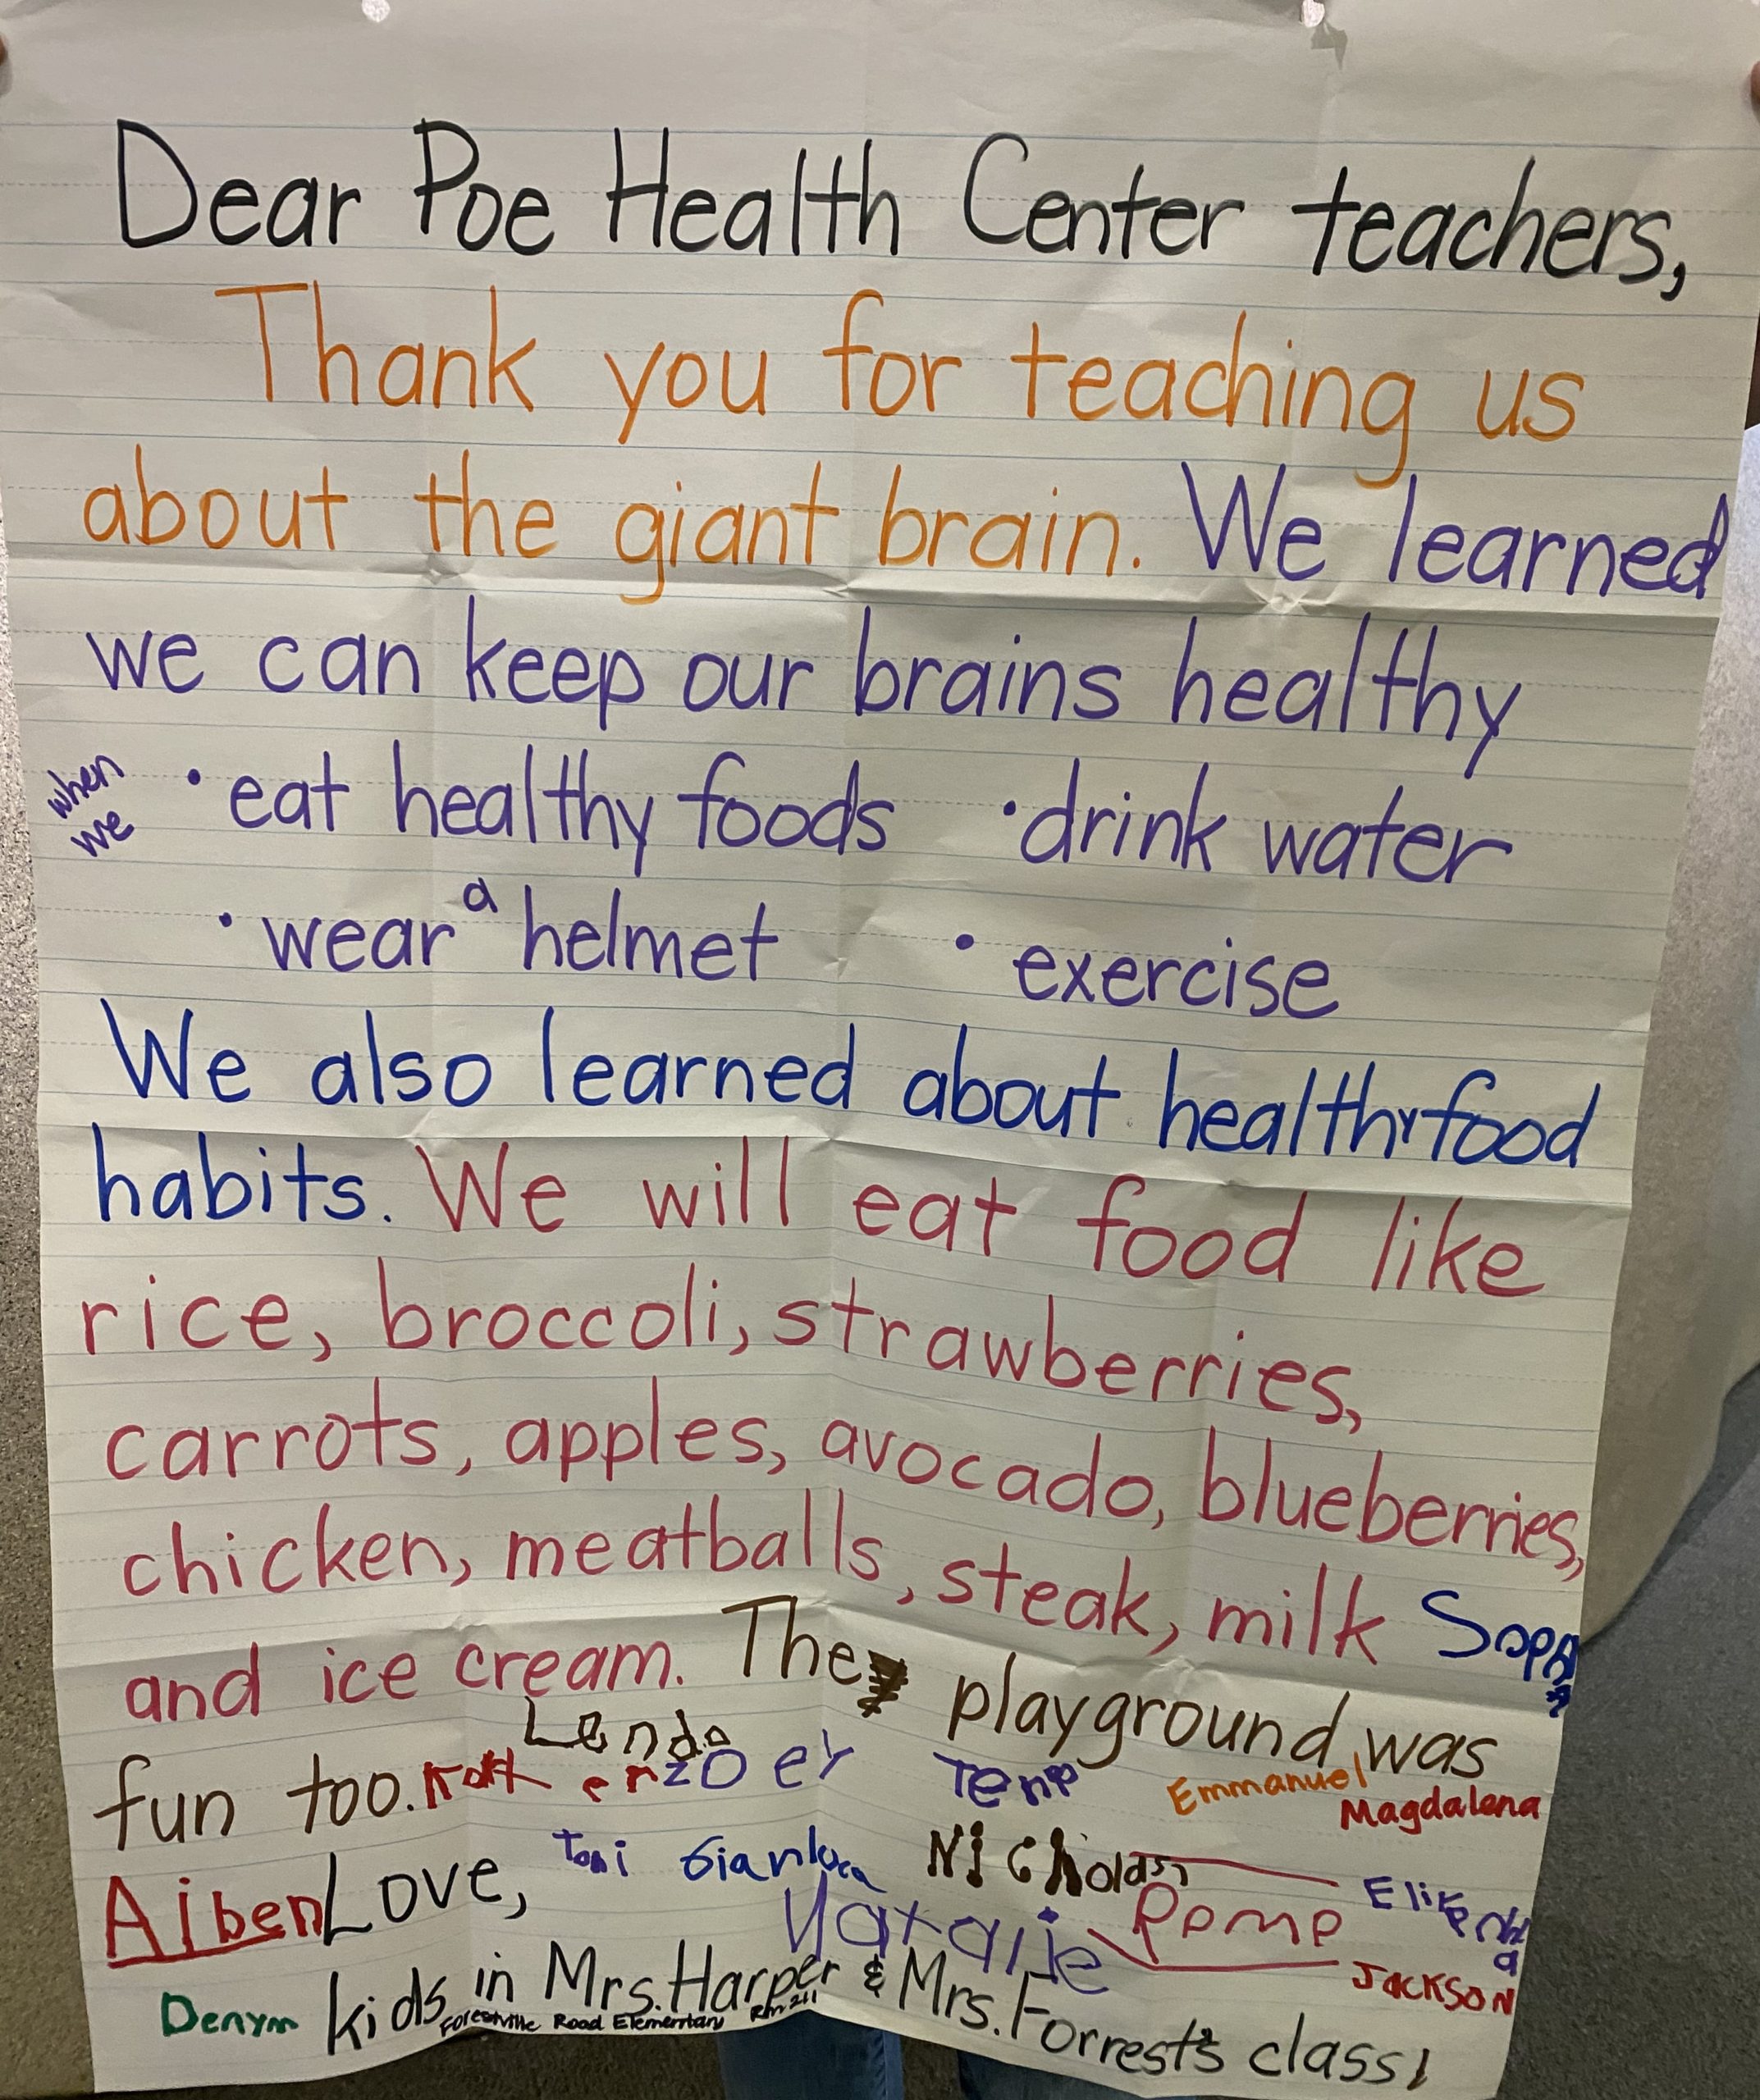 Dear Poe Health Center teachers,
Thank you for teaching us
about the giant brain. We learned
we can keep our brains healthy
when we
• eat healthy foods • drink water
• wear a helmet • exercise
We also learned about healthy food
habits. We will eat food like
rice, broccoli, strawberries,
carrots, apples, avocado, blueberries,
chicken, meatballs, steak, milk
and ice cream. The playground was
fun too.
Emmanuel
Magdalena
Toni Gianluca Nicholas
Aiben Love,
Natalie
JACKSON
Denym kids in Mrs. Harper & Mrs. Forrest's class!
Forestville Road Elementary Rm 211